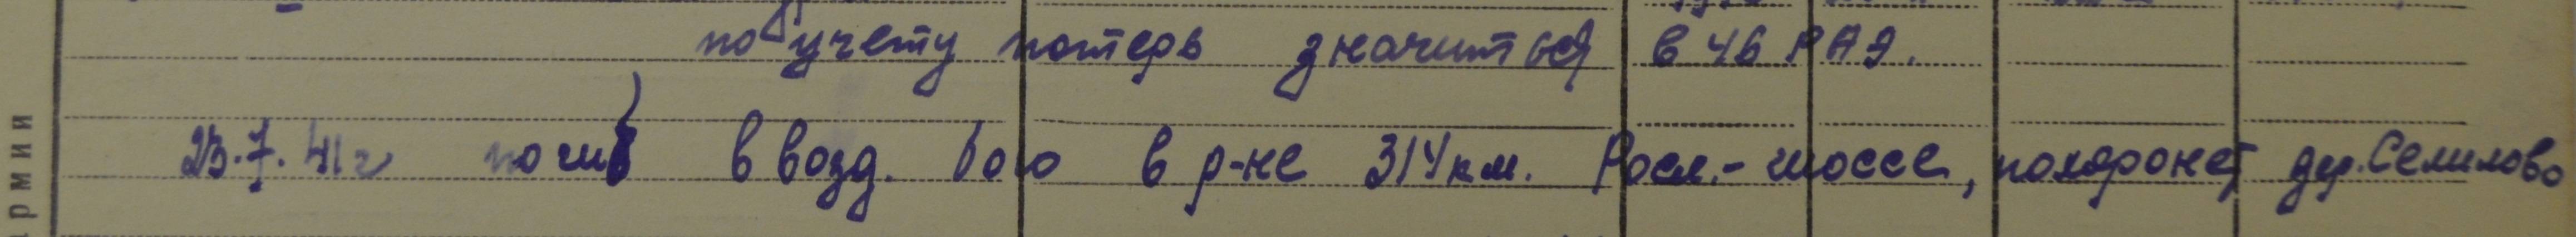 по учету потерь значиться в 46 РАЭ.
23.7.41г погиб в возд. бою в р-не 314 км. Росл.-шоссе, похоронен дер. Селилово
рмии